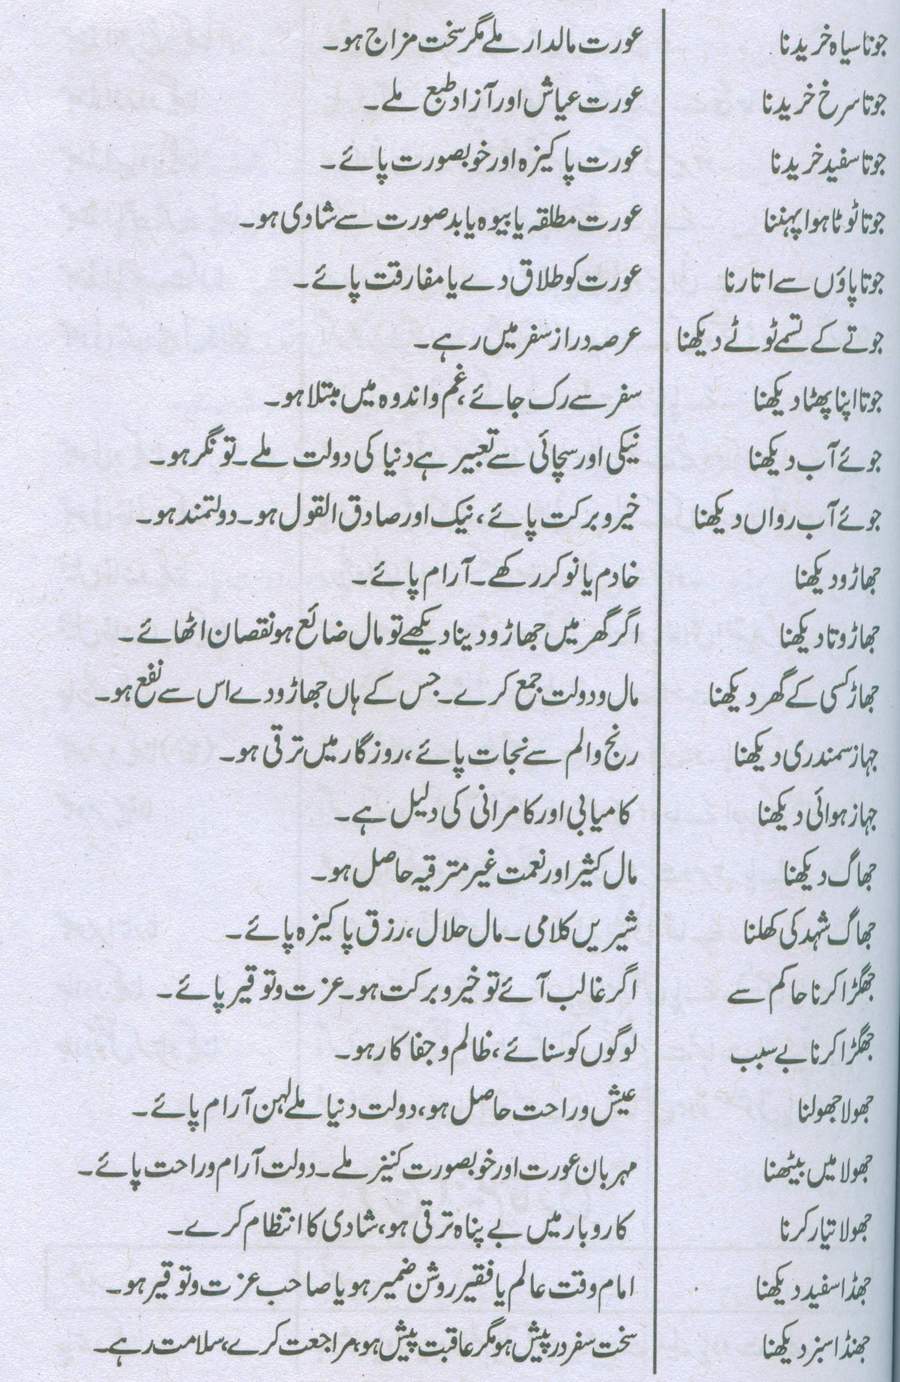 جوتا سیاہ خریدنا عورت مالدار ملے مگر سخت مزاج ہو۔
جوتا سرخ خریدنا عورت عیاش اور آزاد طبع ملے۔
جوتا سفید خریدنا عورت پاکیزہ اور خوبصورت پائے۔
جوتا ٹوٹا ہوا پہننا عورت مطلقہ یا بیوہ یا بدصورت سے شادی ہو۔
جوتا پاؤں سے اتارنا عورت کو طلاق دے یا مفارقت پائے۔
جوتے کے تسمے ٹوٹے دیکھنا عرصہ دراز سفر میں رہے۔
جوتا اپنا پھٹا دیکھنا سفر سے رک جائے، غم و اندوہ میں مبتلا ہو۔
جوئے آب دیکھنا نیکی اور سچائی سے تعبیر ہے دنیا کی دولت ملے۔ تونگر ہو۔
جوئے آب رواں دیکھنا خیر و برکت پائے، نیک اور صادق القول ہو۔ دولتمند ہو۔
جھاڑو دیکھنا خادم یا نوکر رکھے۔ آرام پائے۔
جھاڑو تا دیکھنا اگر گھر میں جھاڑو دینا دیکھے تو مال ضائع ہو نقصان اٹھائے۔
جھاڑ کسی کے گھر دیکھنا مال و دولت جمع کرے۔ جس کے ہاں جھاڑو دے اس سے نفع ہو۔
جہاز سمندری دیکھنا رنج والم سے نجات پائے، روزگار میں ترقی ہو۔
جہاز ہوائی دیکھنا کامیابی اور کامرانی کی دلیل ہے۔
جھاگ دیکھنا مال کثیر اور نعمت غیر مترقبہ حاصل ہو۔
جھاگ شہد کی کھلنا شیریں کلامی۔ مال حلال، رزق پاکیزہ پائے۔
جھگڑا کرنا حاکم سے اگر غالب آئے تو خیر و برکت ہو۔ عزت و توقیر پائے۔
جھگڑا کرنا بے سبب لوگوں کو ستائے، ظالم و جفاکار ہو۔
جھولا جھولنا عیش و راحت حاصل ہو، دولت دنیا ملے لہن آرام پائے۔
جھولا میں بیٹھنا مہربان عورت اور خوبصورت کنیز ملے۔ دولت آرام و راحت پائے۔
جھولا تیار کرنا کاروبار میں بے پناہ ترقی ہو، شادی کا انتظام کرے۔
جھڈا سفید دیکھنا امام وقت عالم یا فقیر روشن ضمیر ہو یا صاحب عزت و توقیر ہو۔
جھنڈا سبز دیکھنا سخت سفر درپیش ہو مگر عاقبت پیش ہو، مراجعت کرے، سلامت رہے۔